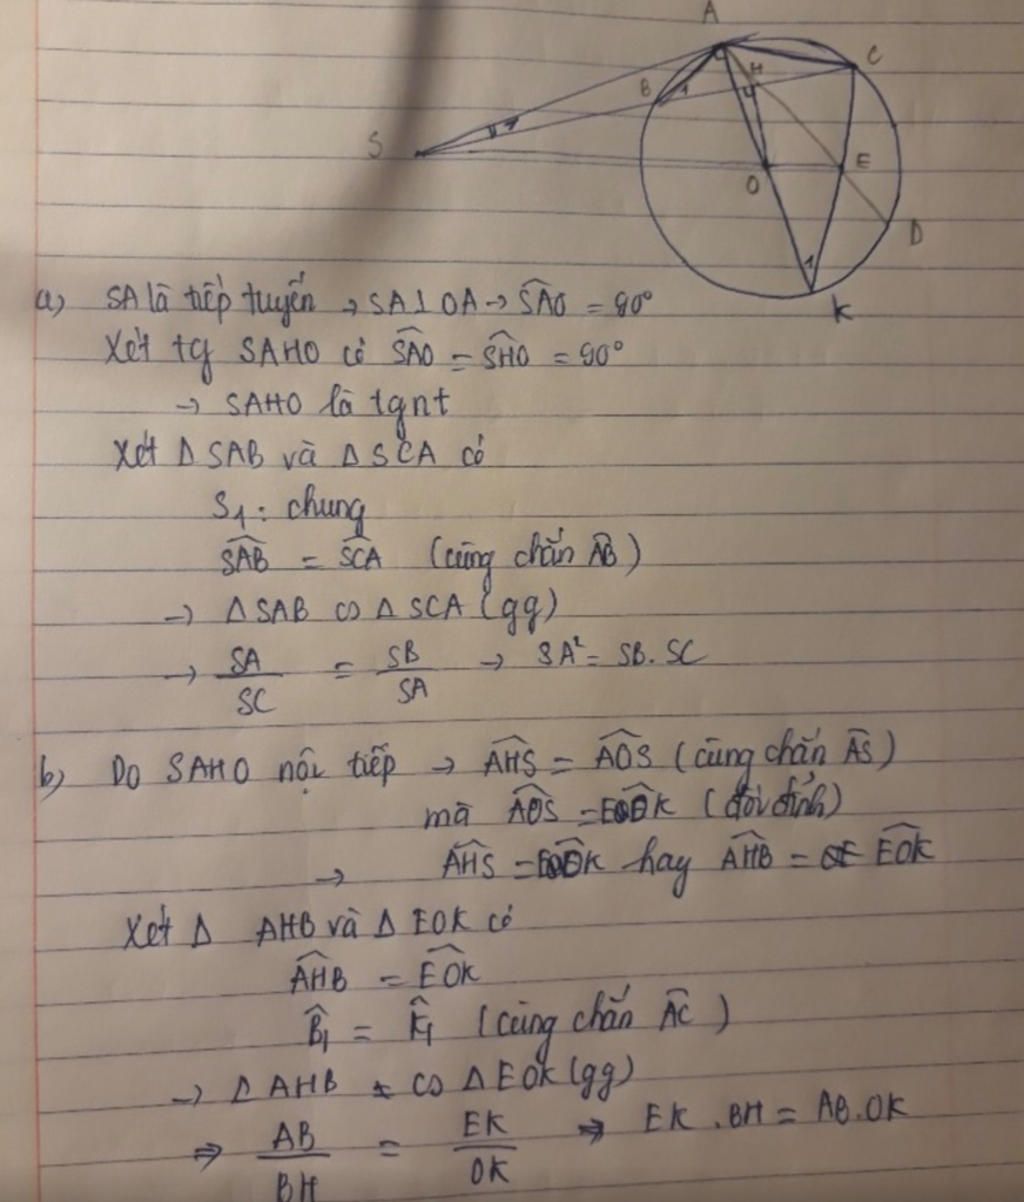 A
C
H
B
1
S
1
E
O
D
1
K
a) SA là tiếp tuyến → SA⊥OA → SAO = 90°
Xét tg SAHO có SAO = SHO = 90°
→ SAHO là tgnt
Xét Δ SAB và Δ SCA có
S1 : chung
SAB = SCA (cùng chắn AB)
→ Δ SAB ∽ Δ SCA (gg)
→ SA/SC = SB/SA → SA² = SB. SC
b) Do SAHO nội tiếp → AHS = AOS (cùng chắn AS)
mà AOS = EOK (đối đỉnh)
→ AHS = EOK hay AHB = EOK
Xét Δ AHB và Δ EOK có
AHB = EOK
B1 = K1 (cùng chắn AC)
→ Δ AHB ∽ Δ EOK (gg)
⇒ AB/BH = EK/OK ⇒ EK . BH = AB. OK